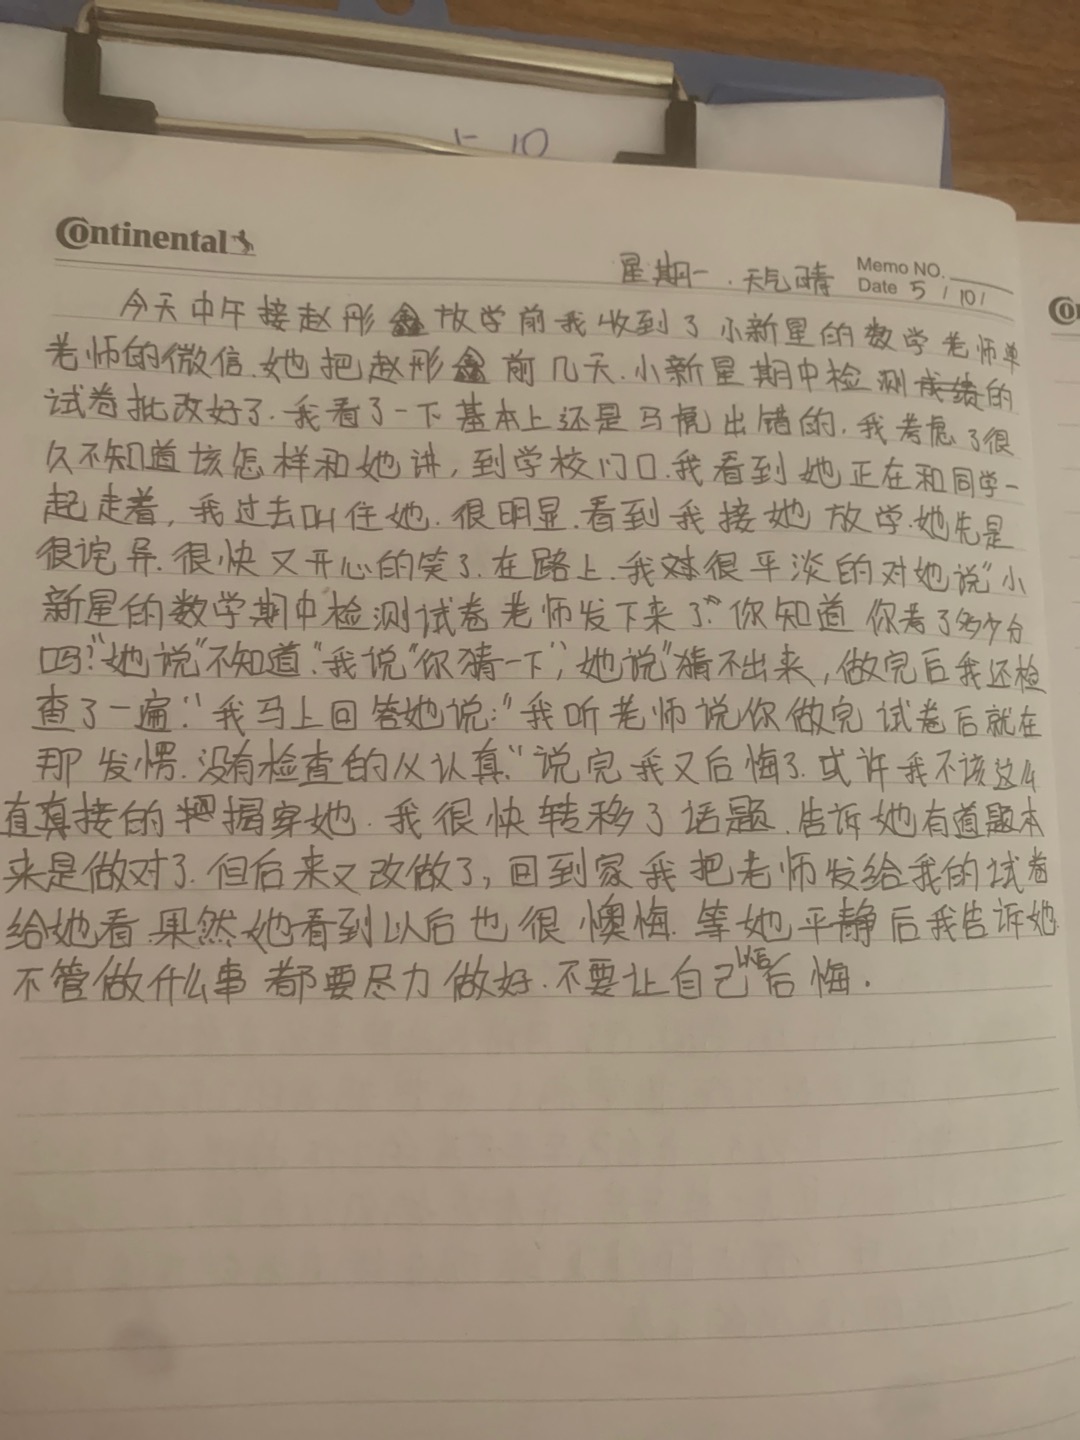 5 10
Continental
星期一. 天气晴 Memo NO.
Date 5 / 10 /
今天中午接赵彤鑫放学前我收到了小新星的数学老师单
老师的微信.她把赵彤鑫前几天.小新星期中检测成绩的
试卷批改好了.我看了一下基本上还是马虎出错的.我考虑了很
久不知道该怎样和她讲,到学校门口.我看到她正在和同学一
起走着,我过去叫住她.很明显.看到我接她放学.她先是
很诧异.很快又开心的笑了.在路上.我很平淡的对她说"小
新星的数学期中检测试卷老师发下来了"你知道你考了多少分
吗?"她说"不知道."我说"你猜一下",她说"猜不出来,做完后我还检
查了一遍."我马上回答她说:"我听老师说你做完试卷后就在
那发愣.没有检查的认真."说完我又后悔了.或许我不该这么
直接的揭穿她.我很快转移了话题.告诉她有道题本
来是做对了.但后来又改做了,回到家我把老师发给我的试卷
给她看.果然她看到以后也很懊悔.等她平静后我告诉她
不管做什么事都要尽力做好.不要让自己以后后悔.